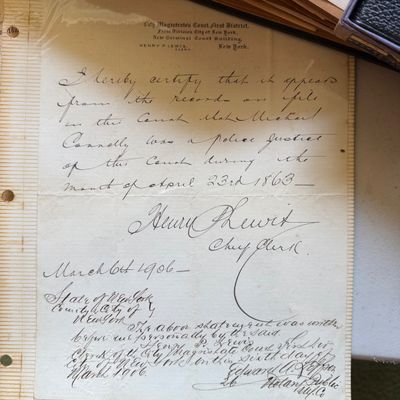 City Magistrates Court First District,
First Division City of New York,
New Criminal Court Building,
New York.
HENRY P. LEWIS,
CLERK
I hereby certify that it appears
from the records on file
in this Court that Michael
Connolly was a police Justice
of this Court during the
month of April 23rd 1863—
Henry P Lewis
Chief Clerk.
March 6th 1906—
State of New York
County & City of
New York
The above statement was written
before me personally by the said
Henry P. Lewis
Clerk of the City Magistrate Court
City of New York on this sixth day of
March 1906.
Edward
Notary Public